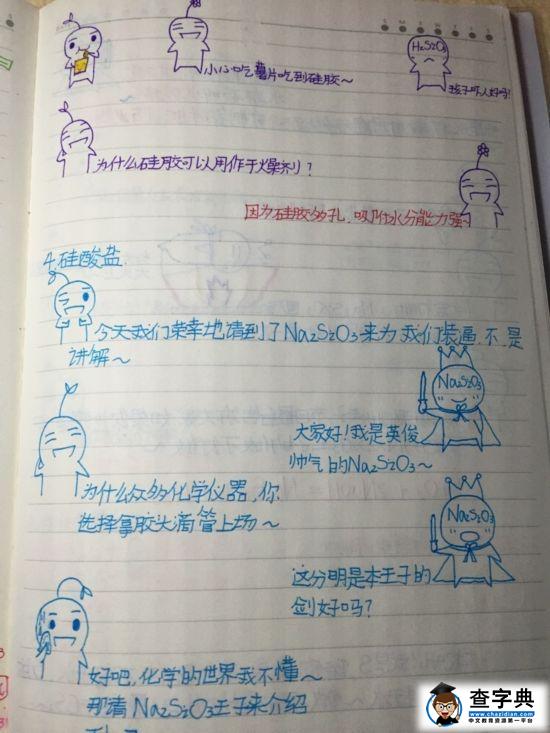 小心吃薯片吃到硅胶～
H₂SiO₃
孩子吓人好吗!
为什么硅胶可以用作干燥剂？
因为硅胶多孔,吸附水分能力强～
4.硅酸盐
今天我们荣幸地请到了Na₂SiO₃来为我们装逼,不,是
讲解～
Na₂SiO₃
大家好!我是英俊
帅气的Na₂SiO₃～
为什么众多化学仪器,你
选择拿胶头滴管上场～
Na₂SiO₃
这分明是本王子的
剑好吗？
好吧,化学的世界我不懂～
那请Na₂SiO₃王子来介绍
查字典
www.chazidian.com
中文教育资源第一平台